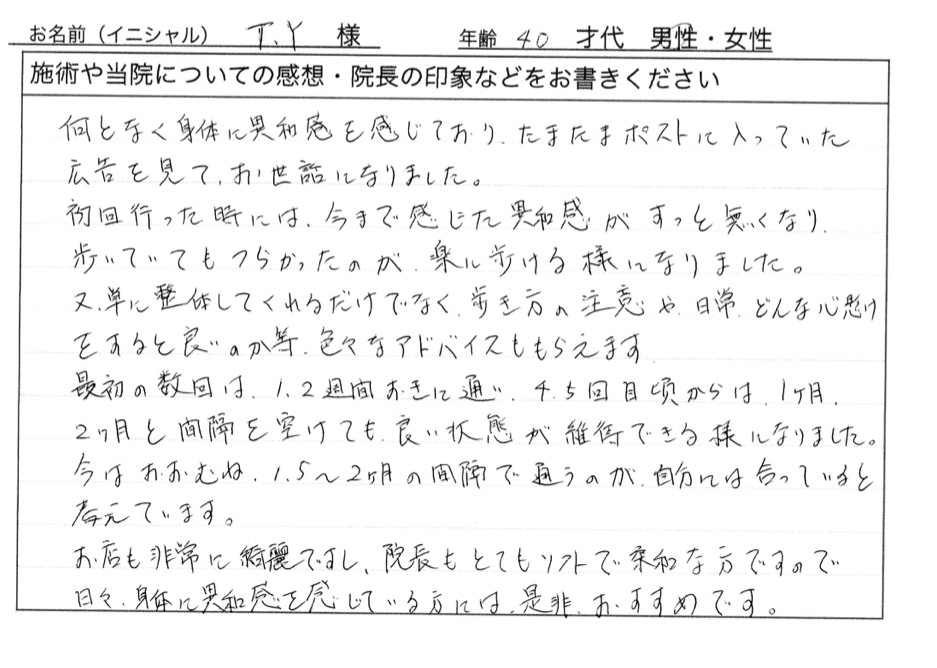 お名前（イニシャル） T.Y 様 年齢 40 才代 男性・女性
施術や当院についての感想・院長の印象などをお書きください
何となく身体に異和感を感じており、たまたまポストに入っていた
広告を見て、お世話になりました。
初回行った時には、今まで感じた異和感がすっと無くなり、
歩いていてもつらかったのが、楽に歩ける様になりました。
又、単に整体してくれるだけでなく、歩き方の注意や、日常、どんな心懸け
をすると良いのか等、色々なアドバイスももらえます
最初の数回は、1.2週間おきに通い、4.5回目頃からは、1ヶ月、
2ヶ月と間隔を空けても、良い状態が維持できる様になりました。
今はおおむね、1.5～2ヶ月の間隔で通うのが、自分には合っていると
考えています。
お店も非常に綺麗ですし、院長もとてもソフトで柔和な方ですので
日々、身体に異和感を感じている方には、是非、おすすめです。